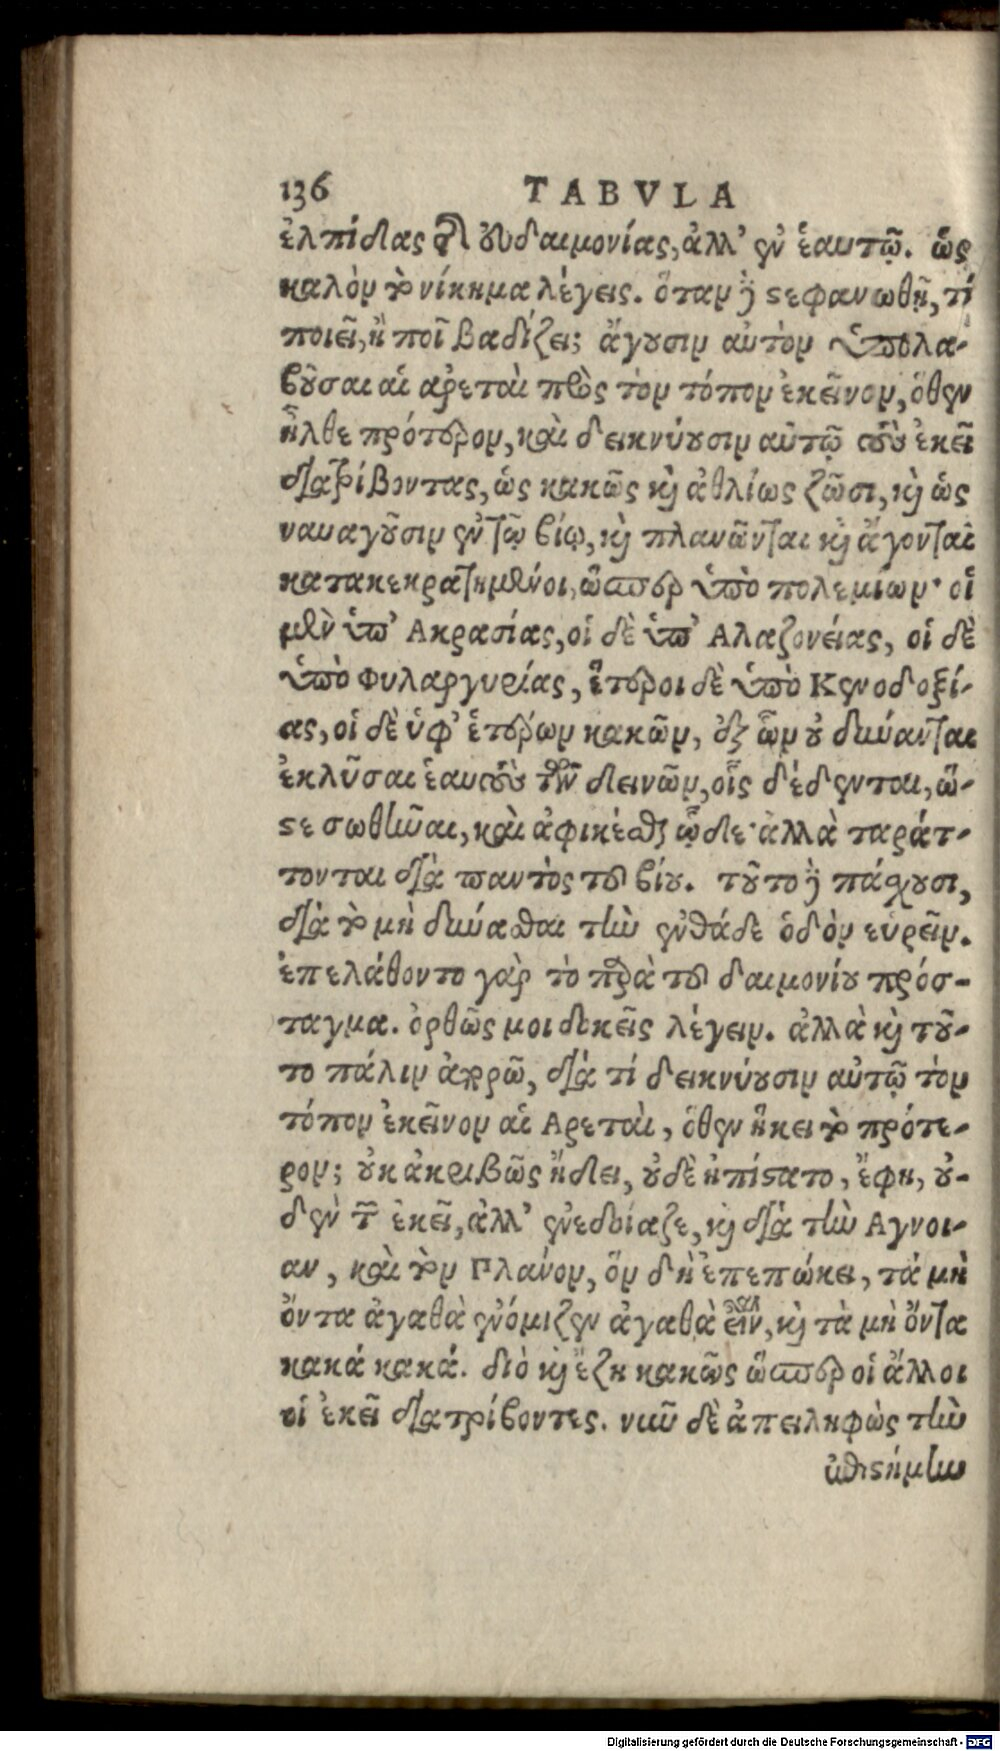 136 TABVLA
ἐλπίδας τῆς εὐδαιμονίας, ἀλλ’ ἐν ἑαυτῷ. ὡς
καλὸν τὸ νίκημα λέγεις. ὅταν δὲ στεφανωθῇ, τί
ποιεῖ, ἢ ποῖ βαδίζει; ἄγουσιν αὐτὸν ὑπολα-
βοῦσαι αἱ ἀρεταὶ πρὸς τὸν τόπον ἐκεῖνον, ὅθεν
ἦλθε πρότερον, καὶ δεικνύουσιν αὐτῷ τοὺς ἐκεῖ
διατρίβοντας, ὡς κακῶς καὶ ἀθλίως ζῶσι, καὶ ὡς
ναυαγοῦσιν ἐν τῷ βίῳ, καὶ πλανῶνται καὶ ἄγονται
κατακεκρατημένοι, ὥσπερ ὑπὸ πολεμίων· οἱ
μὲν ὑπ’ Ακρασίας, οἱ δὲ ὑπ’ Αλαζονείας, οἱ δὲ
ὑπὸ Φυλαργυρίας, ἕτεροι δὲ ὑπὸ Κενοδοξί-
ας, οἱ δὲ ὑφ’ ἑτέρων κακῶν, ἐξ ὧν οὐ δύνανται
ἐκλῦσαι ἑαυτοὺς τῶν δεινῶν, οἷς δέδενται, ὥ-
στε σωθῆναι, καὶ ἀφικέσθαι ὧδε· ἀλλὰ ταράτ-
τονται διὰ παντὸς τοῦ βίου. τοῦτο δὲ πάσχουσι,
διὰ τὸ μὴ δύνασθαι τὴν ἐνθάδε ὁδὸν εὑρεῖν.
ἐπελάθοντο γὰρ τὸ παρὰ τοῦ δαιμονίου πρόσ-
ταγμα. ὀρθῶς μοι δοκεῖς λέγειν. ἀλλὰ καὶ τοῦ-
το πάλιν ἀπορῶ, διὰ τί δεικνύουσιν αὐτῷ τὸν
τόπον ἐκεῖνον αἱ Αρεταὶ, ὅθεν ἥκει τὸ πρότε-
ρον; οὐκ ἀκριβῶς ᾔδει, οὐδὲ ἠπίστατο, ἔφη, οὐ-
δὲν τῶν ἐκεῖ, ἀλλ’ ἐνεδοίαζε, καὶ διὰ τὴν Αγνοι-
αν, καὶ τὸν Πλάνον, ὃν δὴ ἐπεπώκει, τὰ μὴ
ὄντα ἀγαθὰ ἐνόμιζεν ἀγαθὰ εἶναι, καὶ τὰ μὴ ὄντα
κακά κακά. διὸ καὶ ἔζη κακῶς ὥσπερ οἱ ἄλλοι
οἱ ἐκεῖ διατρίβοντες. νῦν δὲ ἀπειληφὼς τὴν
ἐπιστήμην
Digitalisierung gefördert durch die Deutsche Forschungsgemeinschaft - DFG